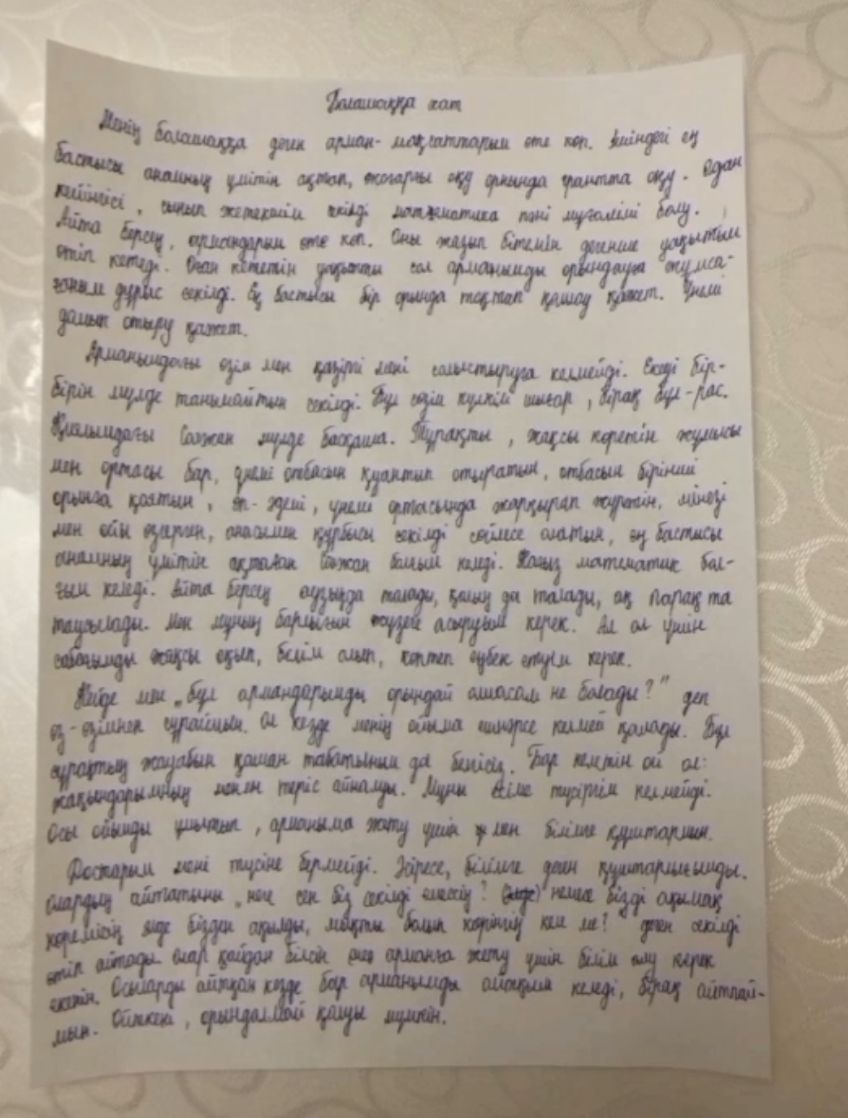 Болашаққа хат
Менің болашаққа деген арман-мақсаттарым өте көп. Ішіндегі ең
бастысы анамның үмітін ақтап, жоғарғы оқу орнында грантта оқу. Одан
кейінгісі, сынып жетекшім секілді математика пәні мұғалімі болу.
Айта берсең, армандарым өте көп. Оны жазып бітемін дегенше уақытым
өтіп кетеді. Оған кететін уақытты сол арманымды орындауға жұмса-
ғаным дұрыс секілді. Ең бастысы бір орында тоқтап қалмау қажет. Үнемі
дамып отыру қажет.
Арманымдағы өзім мен қазіргі мені салыстыруға келмейді. Екеуі бір-
бірін мүлде танымайтын секілді. Бұл сөзім күлкілі шығар, бірақ бұл-рас.
Қиялымдағы мүлде басқаша. Тұрақты, жақсы көретін жұмысы
мен ортасы бар, үнемі отбасын қуантып отыратын, отбасын бірінші
орынға қоятын, әп-әдемі, үнемі ортасында жарқырап жүретін, мінезі
мен ойы өзгерген, анасымен құрбысы секілді сөйлесе алатын, ең бастысы
анамның үмітін ақтаған болғым келеді. Нағыз математик бол-
ғым келеді. Айта берсең ауызың да талады, қолың да талады, ақ парақ та
таусылады. Мен мұның барлығын жүзеге асыруым керек. Ал ол үшін
сабағымды жақсы оқып, білім алып, көптеп еңбек етуім керек.
Кейде мен „бұл армандарымды орындай алмасам не болады?" деп
өз-өзімнен сұраймын. Ол кезде менің ойыма ештеңе келмей қалады. Бұл
сұрақтың жауабын қашан табатыным да белгісіз. Бар келетін ой ол:
жақындарымның менен теріс айналуы. Мұны есіме түсіргім келмейді.
Осы ойымды ұмытып, арманыма жету үшін мен білімге құштармын.
Достарым мені түсіне бермейді. Әсіресе, білімге деген құштарлығымды.
Олардың айтатыны „неге сен біз секілді емессің? немесе бізді ақымақ
көремісің әлде бізден ақылды, мықты болып көрінгің келе ме?" деген секілді
етіп айтады. Олар қайдан білсін арманға жету үшін білім алу керек
екенін. Осыларды айтқан кезде бар арманымды айтқым келеді, бірақ айтпай-
мын. Өйткені, орындалмай қалуы мүмкін.